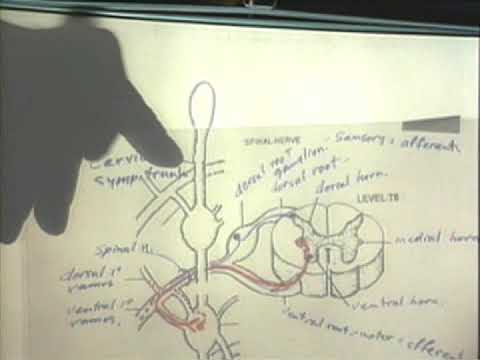 SPINAL NERVE
- Sensory = afferent
dorsal root
ganglion.
dorsal root.
dorsal horn.
LEVEL-T8
Spinal n.
medial horn
dorsal 1°
ramus
ventral 1°
ramus.
ventral horn.
ventral root = motor = efferent